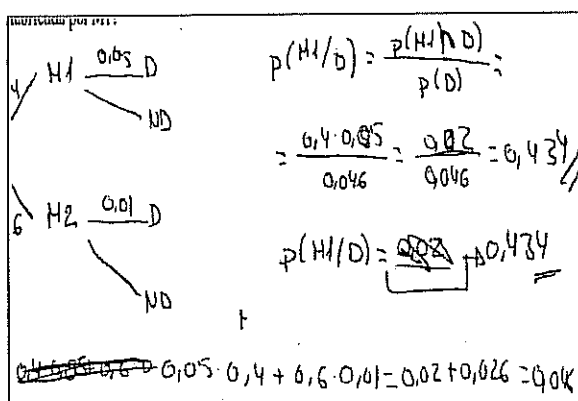 4 M1 0,05 D
ND
6 M2 0,01 D
ND
p(M1/D) = p(M1∩D) / p(D) =
= 0,4·0,05 / 0,046 = 0,02 / 0,046 = 0,434
p(M1/D) = 0,434
0,05·0,4 + 0,6·0,01 = 0,02 + 0,026 = 0,046